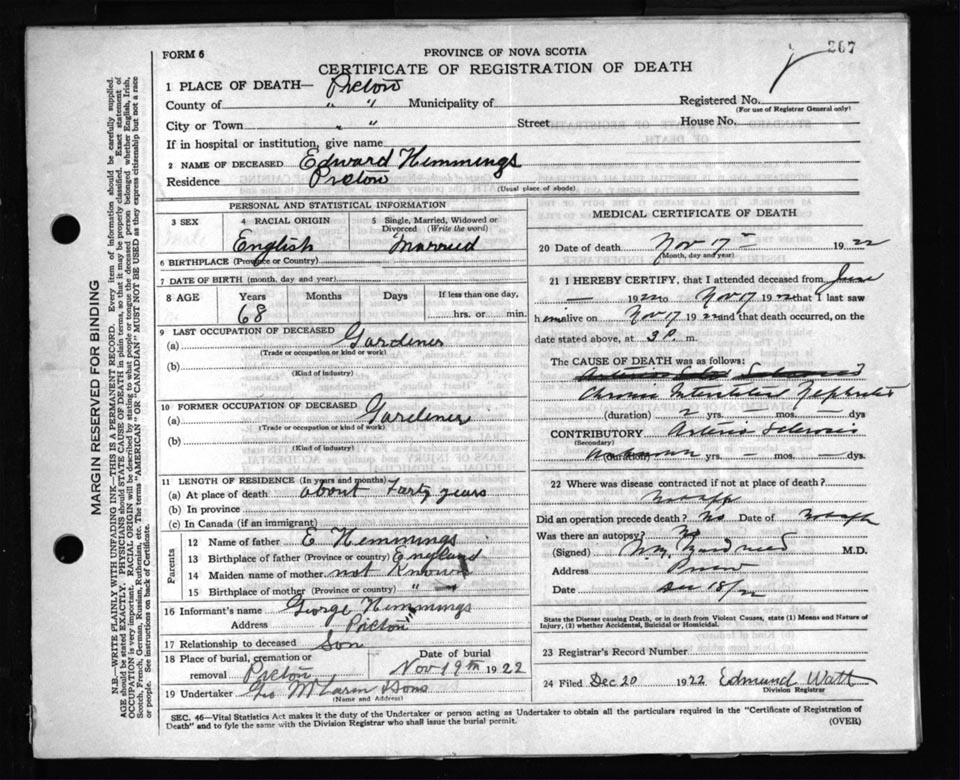 267
FORM 6
PROVINCE OF NOVA SCOTIA
CERTIFICATE OF REGISTRATION OF DEATH
1 PLACE OF DEATH— Pictou
County of " " Municipality of
Registered No.
(For use of Registrar General only)
City or Town " " Street House No.
If in hospital or institution, give name
2 NAME OF DECEASED Edward Hemmings
Residence Pictou
(Usual place of abode)
PERSONAL AND STATISTICAL INFORMATION
3 SEX
4 RACIAL ORIGIN
English
5 Single, Married, Widowed or Divorced (Write the word)
Married
6 BIRTHPLACE (Province or Country)
7 DATE OF BIRTH (month, day and year)
8 AGE Years Months Days If less than one day,
68 hrs. or min.
9 LAST OCCUPATION OF DECEASED
(a) Gardener
(Trade or occupation or kind or work)
(b)
(Kind of industry)
10 FORMER OCCUPATION OF DECEASED
(a) Gardener
(Trade or occupation or kind of work)
(b)
(Kind of industry)
11 LENGTH OF RESIDENCE (In years and months)
(a) At place of death about Forty years
(b) In province
(c) In Canada (if an immigrant)
Parents
12 Name of father E Hemmings
13 Birthplace of father (Province or country) England
14 Maiden name of mother not Known
15 Birthplace of mother (Province or country) "
16 Informant's name George Hemmings
Address Pictou
17 Relationship to deceased Son
18 Place of burial, cremation or removal Pictou
Date of burial Nov 19th 1922
19 Undertaker Geo McLaren & Sons
(Name and Address)
MEDICAL CERTIFICATE OF DEATH
20 Date of death Nov 17 1922
(Month, day and year)
21 I HEREBY CERTIFY, that I attended deceased from June
— 1922 to Nov 17 1922 that I last saw
him alive on Nov 17 1922 and that death occurred, on the
date stated above, at 3 P. m.
The CAUSE OF DEATH was as follows:
Chronic Interstitial Nephritis
(duration) 2 yrs. — mos. — dys
CONTRIBUTORY Arterio Sclerosis
(Secondary)
(duration) unknown yrs. — mos. — dys.
22 Where was disease contracted if not at place of death?
Did an operation precede death? No Date of
Was there an autopsy? No
(Signed) M.D.
Address Pictou
Date 18/22
State the Disease causing Death, or in death from Violent Causes, state (1) Means and Nature of Injury, (2) whether Accidental, Suicidal or Homicidal.
23 Registrar's Record Number
24 Filed Dec 20 1922 Edmund Watt
Division Registrar
SEC. 46—Vital Statistics Act makes it the duty of the Undertaker or person acting as Undertaker to obtain all the particulars required in the "Certificate of Registration of
Death" and to fyle the same with the Division Registrar who shall issue the burial permit.
(OVER)
MARGIN RESERVED FOR BINDING
N.B.—WRITE PLAINLY WITH UNFADING INK—THIS IS A PERMANENT RECORD. Every item of information should be carefully supplied.
AGE should be stated EXACTLY. PHYSICIANS should STATE CAUSE OF DEATH in plain terms, so that it may be properly classified. Exact statement of
OCCUPATION is very important. RACIAL ORIGIN will be described by stating to what people or tongue the deceased person belonged whether English, Irish,
Scotch, French, German, Russian, Ruthenian, etc. The terms "AMERICAN" OR "CANADIAN" MUST NOT BE USED as they express citizenship but not a race
or people. See instructions on back of Certificate.